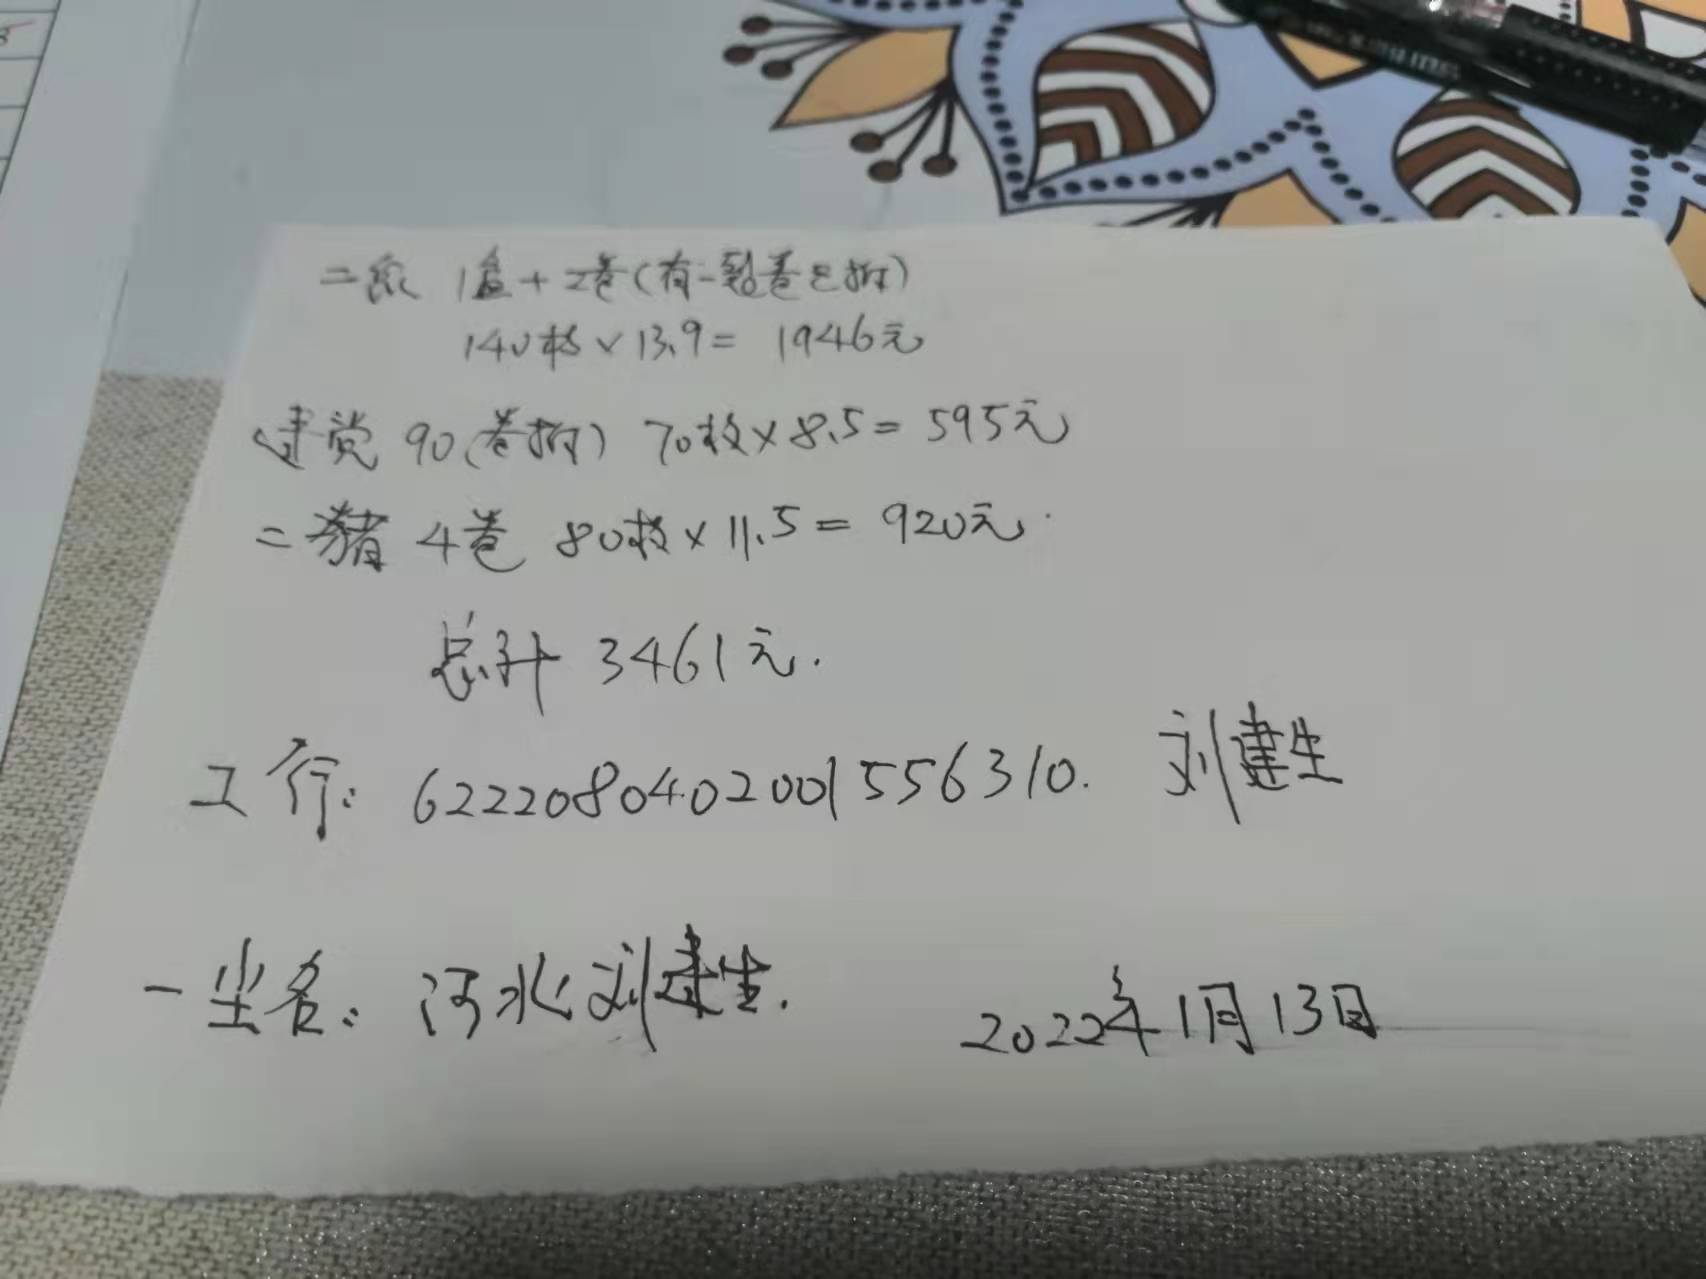 二鼠 1盒+2卷(有一整卷已拆)
140枚×13.9=1946元
建党 90(卷拆) 70枚×8.5=595元
二猪 4卷 80枚×11.5=920元
总计 3461元.
工行: 6222080402001556310. 刘建生
一尘名: 河水刘建生. 2022年1月13日